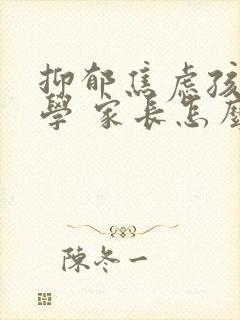 抑郁焦虑孩
學 家長怎麽
陳冬一